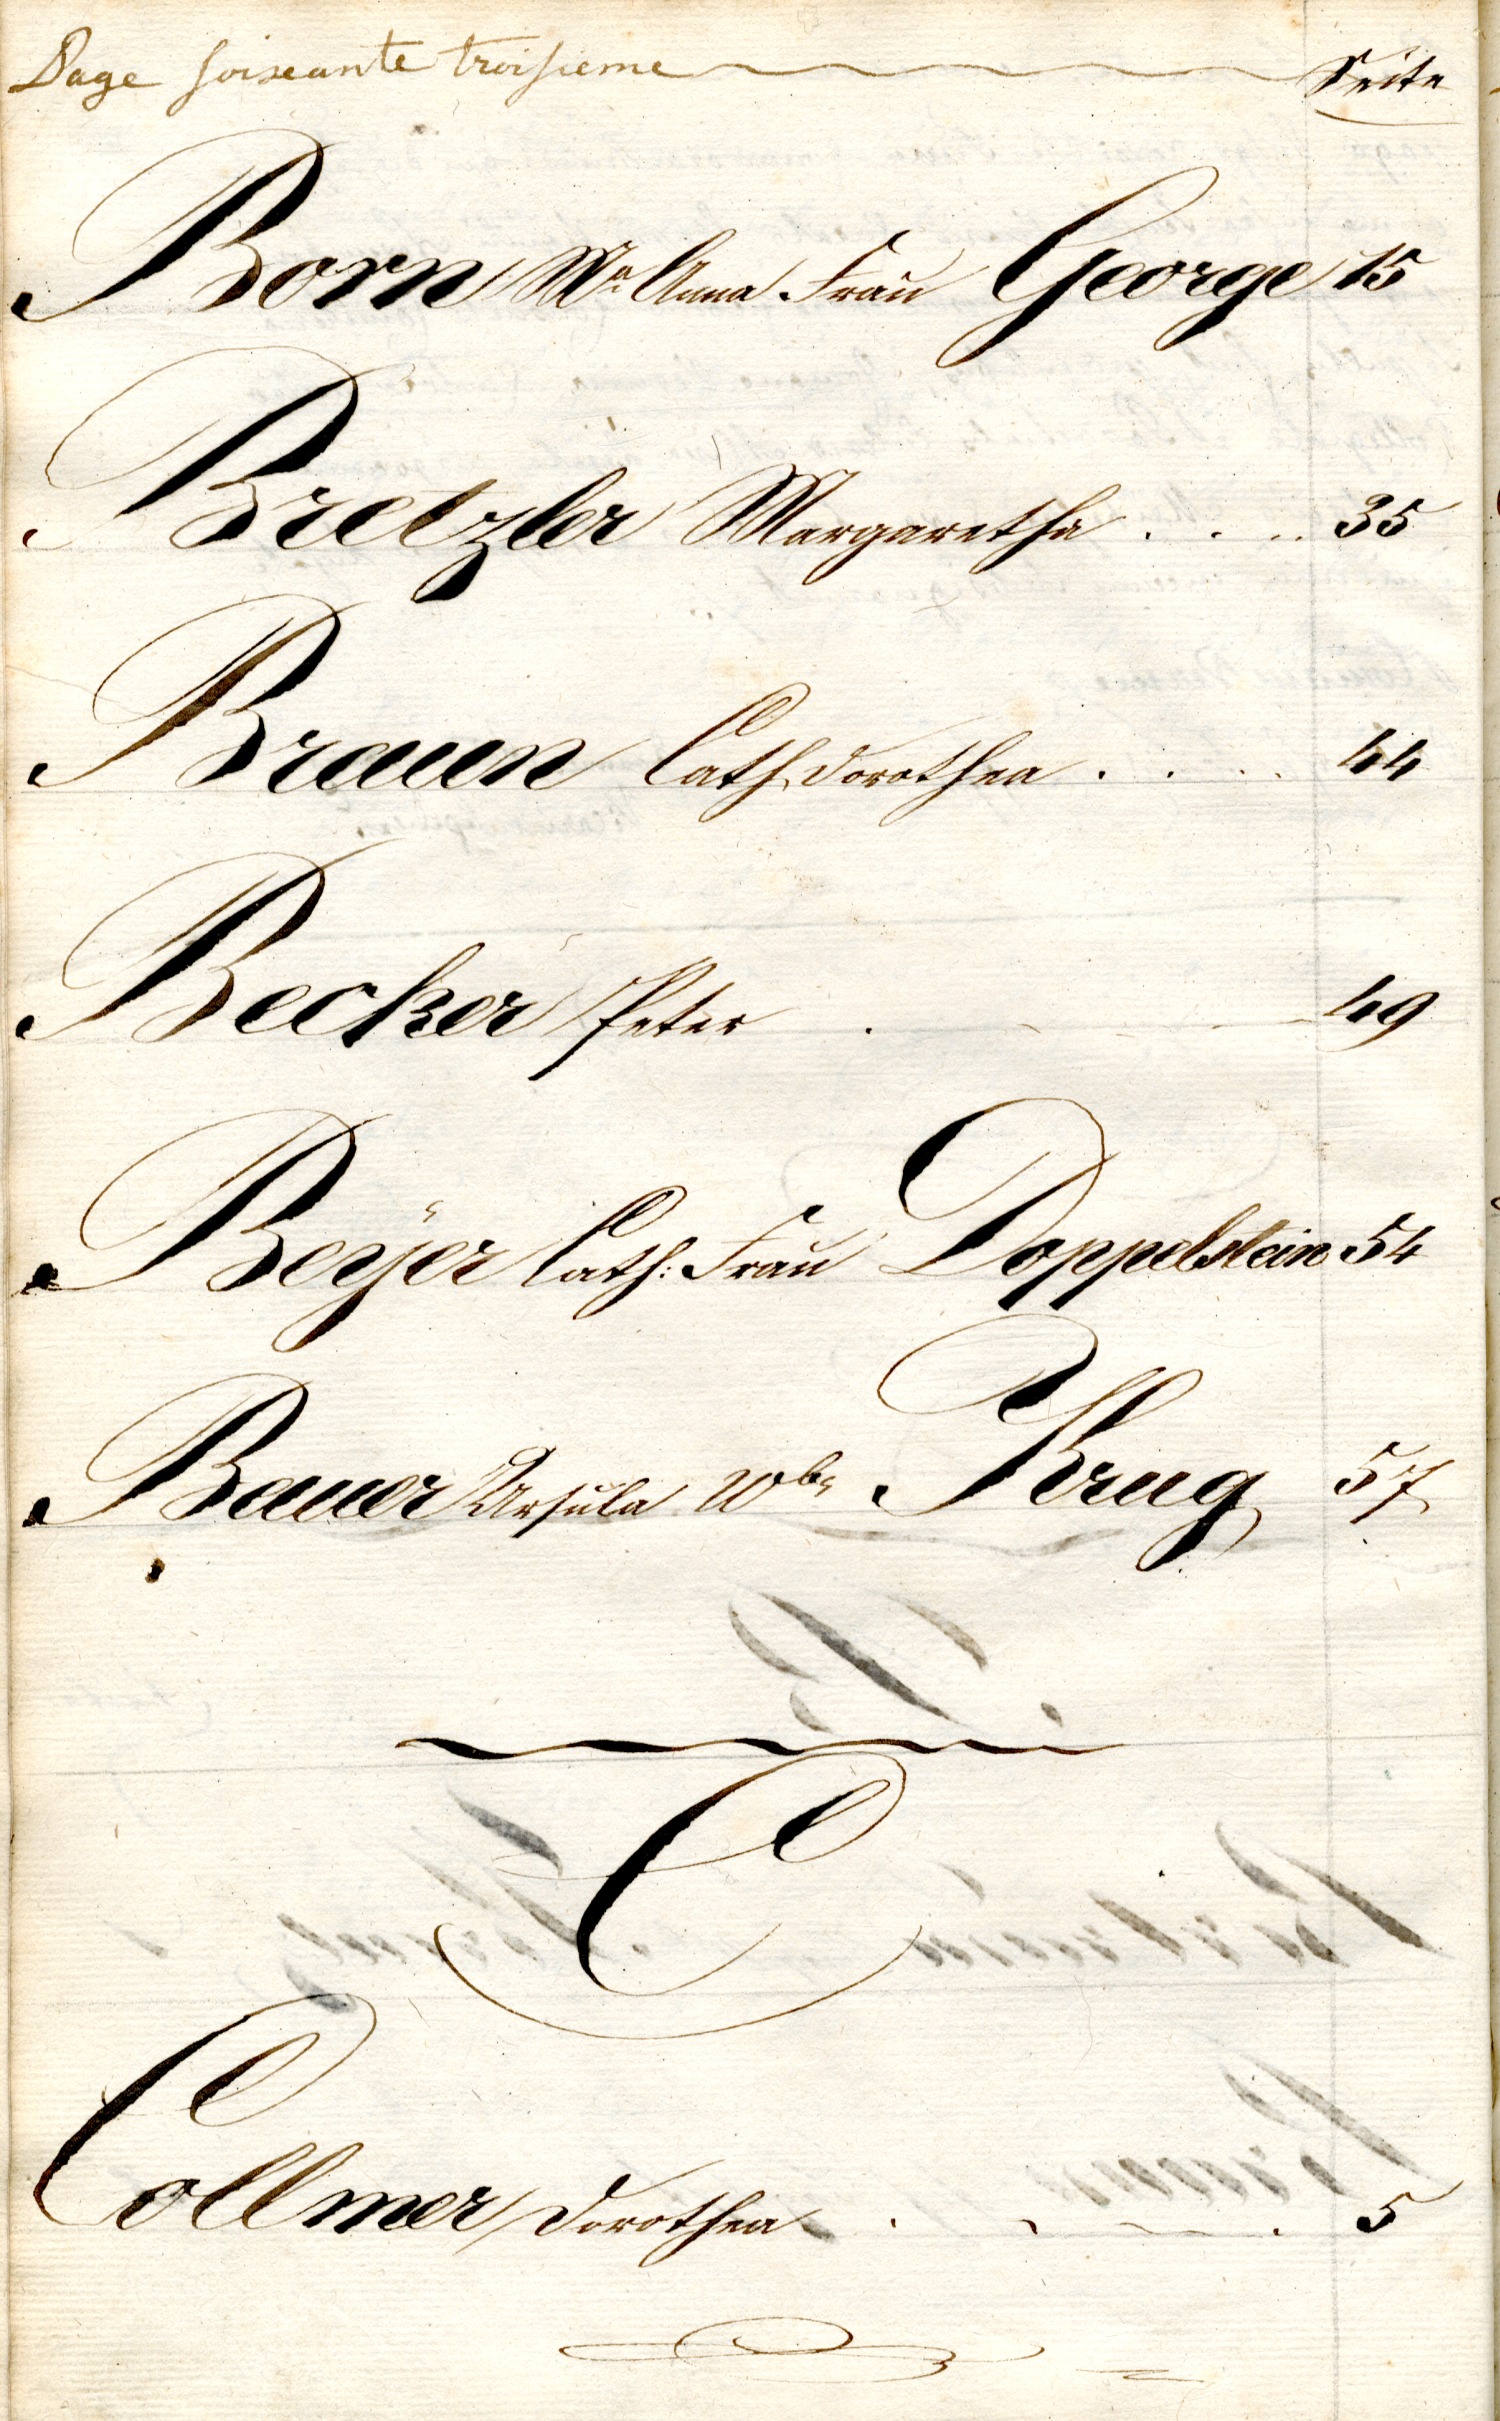 Page soixeante troisieme Seite
Born Ma Anna Frau George 15
Bretzler Margaretha . . . . 35
Braun Cath. Dorothea . . . . 44
Becker Peter . 49
Beÿer Cath: Frau Doppelstein 54
Bauer Ursula Wbe Krug 57
C
Collmer Dorothea . . . 5